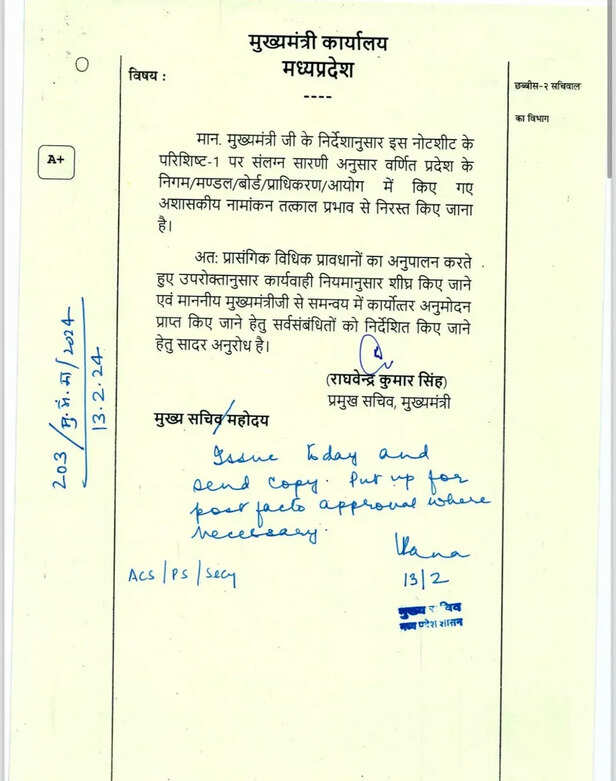 मुख्यमंत्री कार्यालय
मध्यप्रदेश
----
विषय :
छब्बीस-२ सचिवाल
का विभाग
A+
मान. मुख्यमंत्री जी के निर्देशानुसार इस नोटशीट के
परिशिष्ट-1 पर संलग्न सारणी अनुसार वर्णित प्रदेश के
निगम/मण्डल/बोर्ड/प्राधिकरण/आयोग में किए गए
अशासकीय नामांकन तत्काल प्रभाव से निरस्त किए जाना
है।
अत: प्रासंगिक विधिक प्रावधानों का अनुपालन करते
हुए उपरोक्तानुसार कार्यवाही नियमानुसार शीघ्र किए जाने
एवं माननीय मुख्यमंत्रीजी से समन्वय में कार्योत्तर अनुमोदन
प्राप्त किए जाने हेतु सर्वसंबंधितों को निर्देशित किए जाने
हेतु सादर अनुरोध है।
(राघवेन्द्र कुमार सिंह)
प्रमुख सचिव, मुख्यमंत्री
203/मु.मं.मा/2024
13.2.24
मुख्य सचिव महोदय
Issue today and
send copy. Put up for
post facto approval where
necessary.
13/2
ACS/PS/Secy
मुख्य सचिव
मध्य प्रदेश शासन